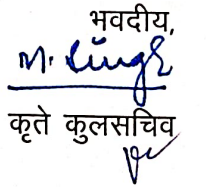 भवदीय,
M. Singh
कृते कुलसचिव